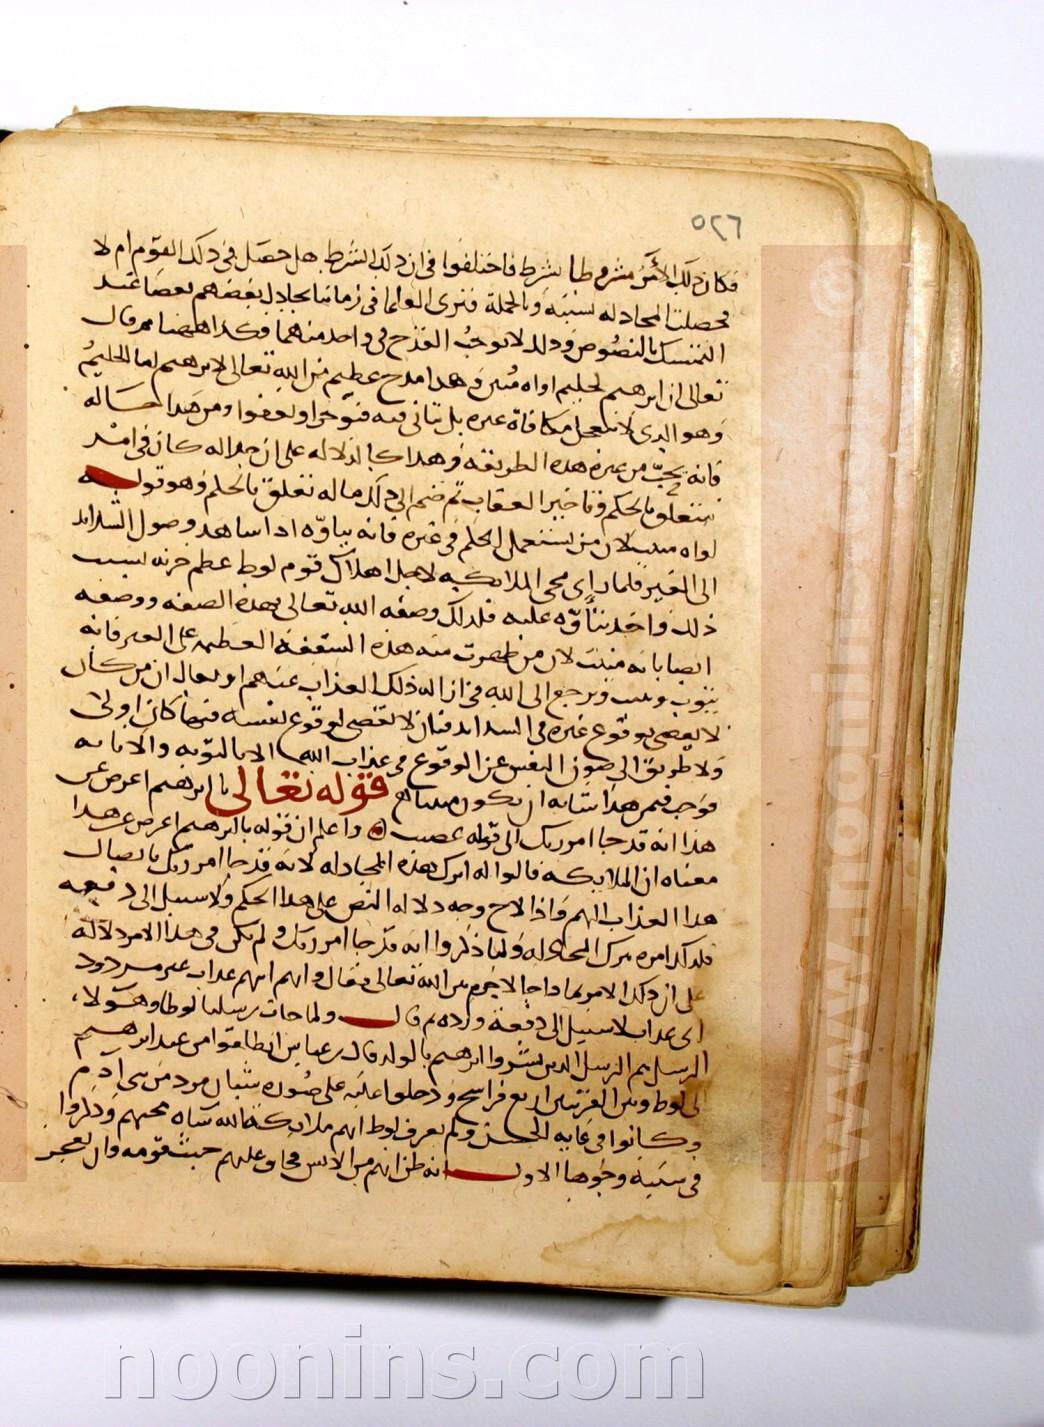 ٥٢٦
فكان ذلك الأمر مشروطا بشرط فاختلفوا فى ان ذلك الشرط هل حصل فى ذلك القوم ام لا
فحصلت المجادله بسببه وبالجملة فنرى العلما فى زماننا يجادل بعضهم بعضا عند
التمسك بالنصوص وذلك لا يوجب القدح فى واحد منهما فكذا ههنا ثم قال
تعالى ان ابرهيم لحليم اواه منيب وهذا مدح عظيم من الله تعالى لابرهيم اما الحليم
وهو الذى لا يتعجل مكافاة غيره بل يتانى فيه فيؤخر او يعفوا ومن هذا حاله
فانه يحب من غيره هذه الطريقه وهذا كالدلاله على ان جداله كان فى امر
يتعلق بالحكم وتاخير العقاب ثم ضم الى ذلك ماله تعلق بالحلم وهو قوله
اواه منيب لان من يستعمل الحلم فى غيره فانه يتاوه اذا شاهد وصول الشدايد
الى الغير فلما راى مجى الملايكه لاجل اهلاك قوم لوط عظم حزنه بسبب
ذلك واخذ يتأوه عليه فلذلك وصفه الله تعالى بهذه الصفه ووصفه
ايضا بانه منيب لان من ظهرت منه هذه الشفقة العظيمه على الغير فانه
يتوب وينيب ويرجع الى الله فى ازاله ذلك العذاب عنهم او يقال ان من كان
لا يرضى بوقوع غيره فى الشدايد فبان لا يرضى بوقوع نفسه فيها كان اولى
ولا طريق الى صون النفس عن الوقوع فى عذاب الله الا بالتوبه والانابه
فوجب فيمن هذا شانه ان يكون منيبا قوله تعالى يا ابرهيم اعرض عن
هذا انه قد جا امر ربك الى قوله عصيب واعلم ان قوله يا ابرهيم اعرض عن هذا
معناه ان الملايكه قالوا له اترك هذه المجادله لانه قد جا امر ربك بايصال
هذا العذاب اليهم واذا لاح وجه دلاله النص على هذا الحكم ولا سبيل الى دفعه
فلذلك امره بترك المجادله ولما ذكروا انه قد جا امر ربك ولم يكن فى هذا الامر دلالة
على ان ذلك الامر بماذا جا لا جرم بين الله تعالى فقال وانهم اتيهم عذاب غير مردود
اى عذاب لا سبيل الى دفعه ورده ثم قال ولما جات رسلنا لوطا وهولا
الرسل هم الرسل الذين بشروا ابرهيم بالولد قال بن عباس انطلقوا من عند ابرهيم
الى لوط وبين القريتين اربع فراسخ ودخلوا عليه على صورة شبان مرد من بنى آدم
وكانوا فى غايه الحسن ولم يعرف لوط انهم ملايكة الله ساه مجيهم وذكروا
فى سببه وجوها الاول انه ظن انهم من الانس فخاف عليهم خبث قومه وان يعجز
noonins.com
www.noonins.com ©